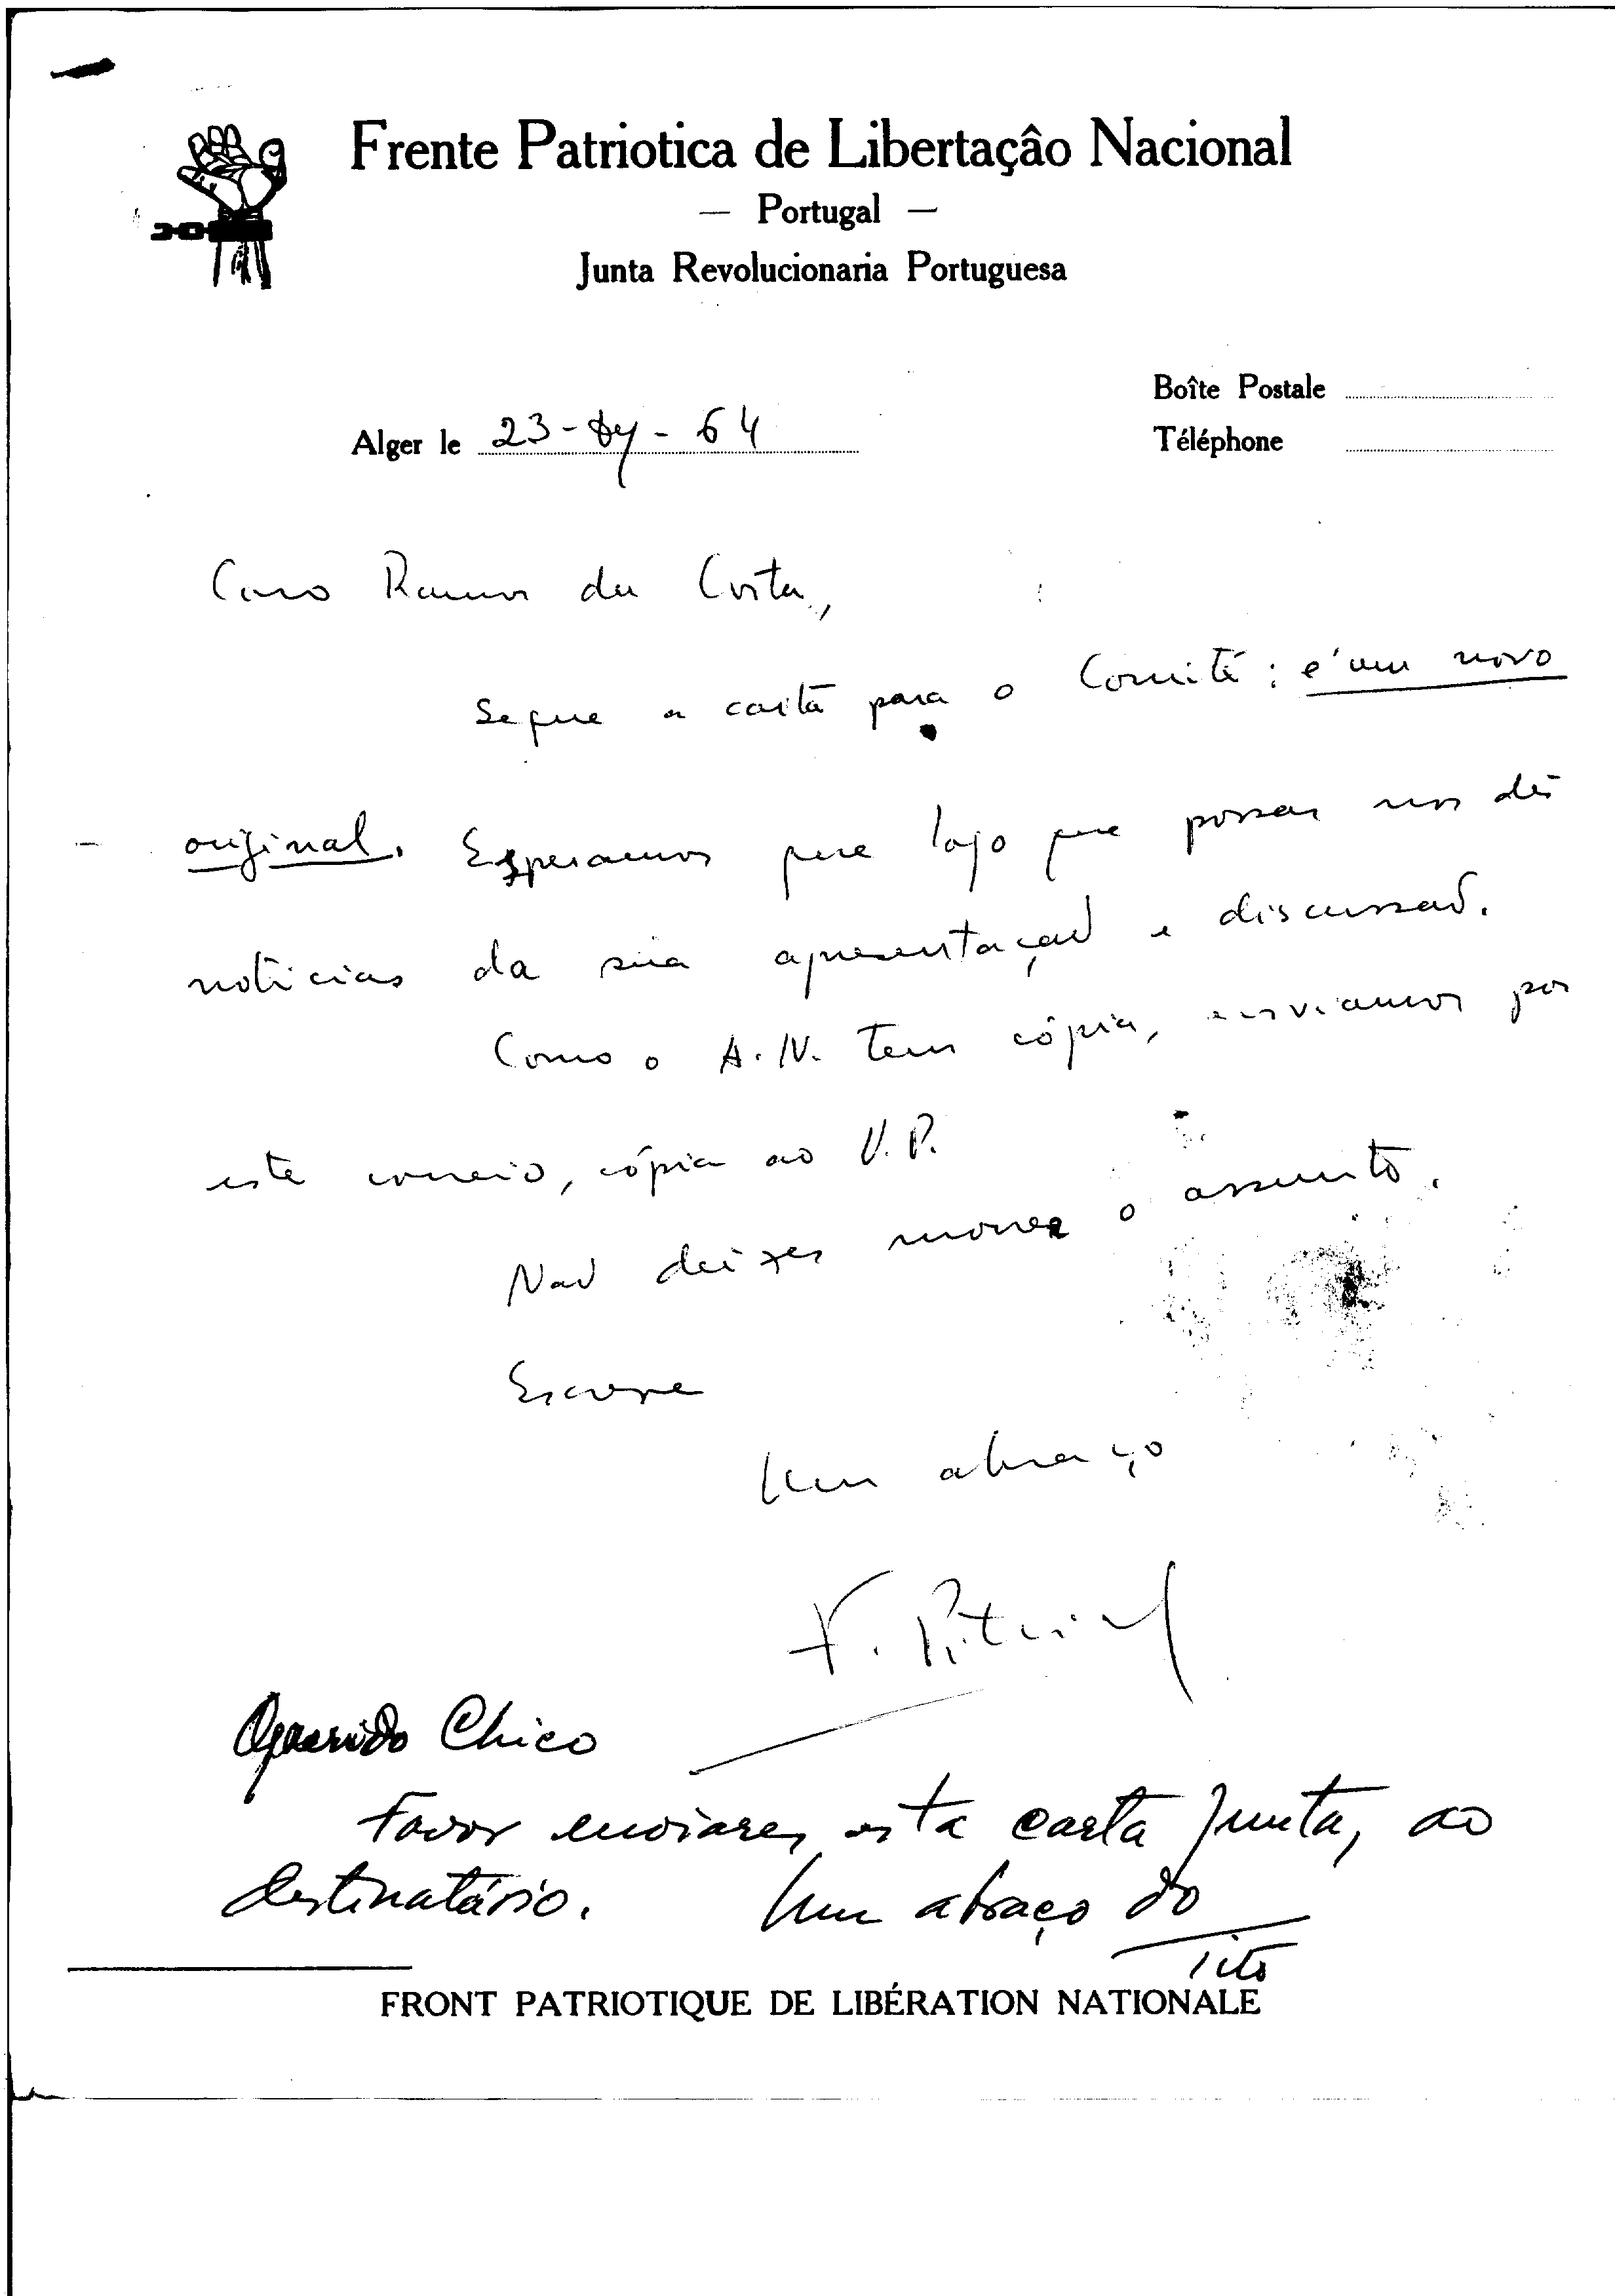 Frente Patriotica de Libertaçâo Nacional
— Portugal —
Junta Revolucionaria Portuguesa
Boîte Postale
Alger le 23- -64
Téléphone
Caro Ramos da Costa,
Segue a carta para o Comité: é um novo
original. Esperamos que logo que possas nos dês
noticias da sua apresentaçaõ e discussaõ.
Como o A.N. tem cópia, enviamos por
este correio, cópia ao V.P.
Naõ deixes morrer o assunto.
Escreve
Um abraço
F.
Querido Chico
Favor enviares esta carta junta, ao
destinatário. Um abraço do
Tito
FRONT PATRIOTIQUE DE LIBÉRATION NATIONALE